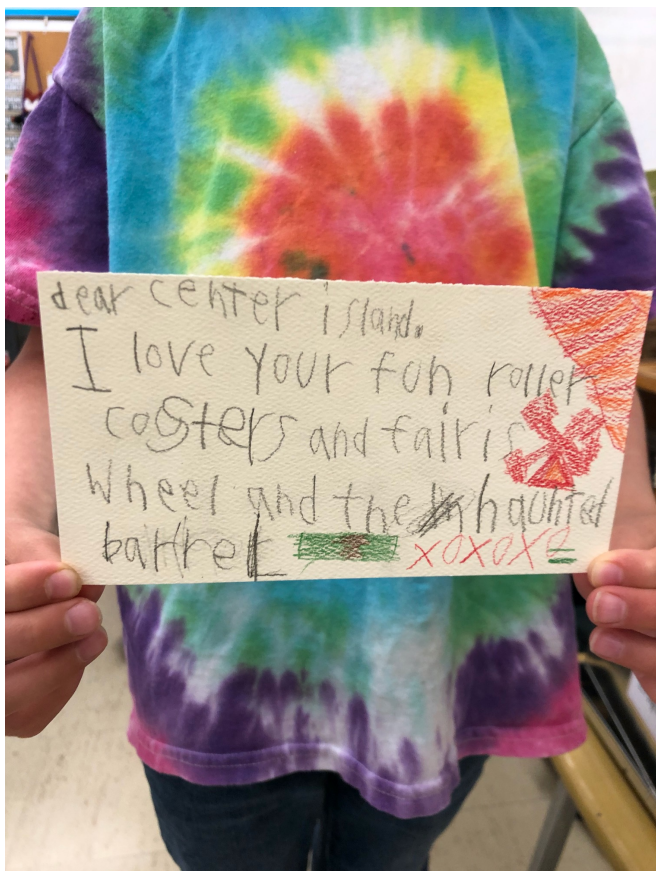 dear center island.
I love your fon roller
costers and fairis
wheel and the haunted
barrel
xoxoxo